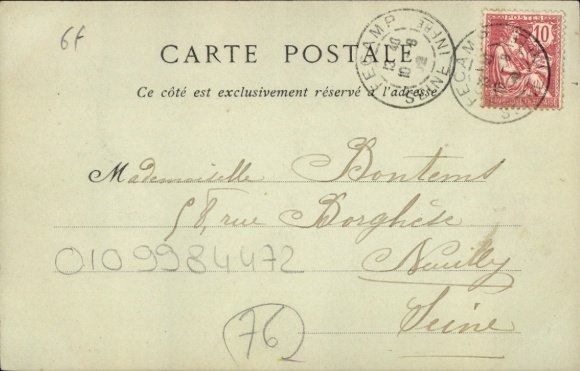 6f
POSTES
10
CARTE POSTALE
FECAMP
SEINE INFRE
FECAMP
Ce côté est exclusivement réservé à l'adresse
Mademoiselle Bontems
58, rue Borghèse
0109984472
Neuilly
76
Seine